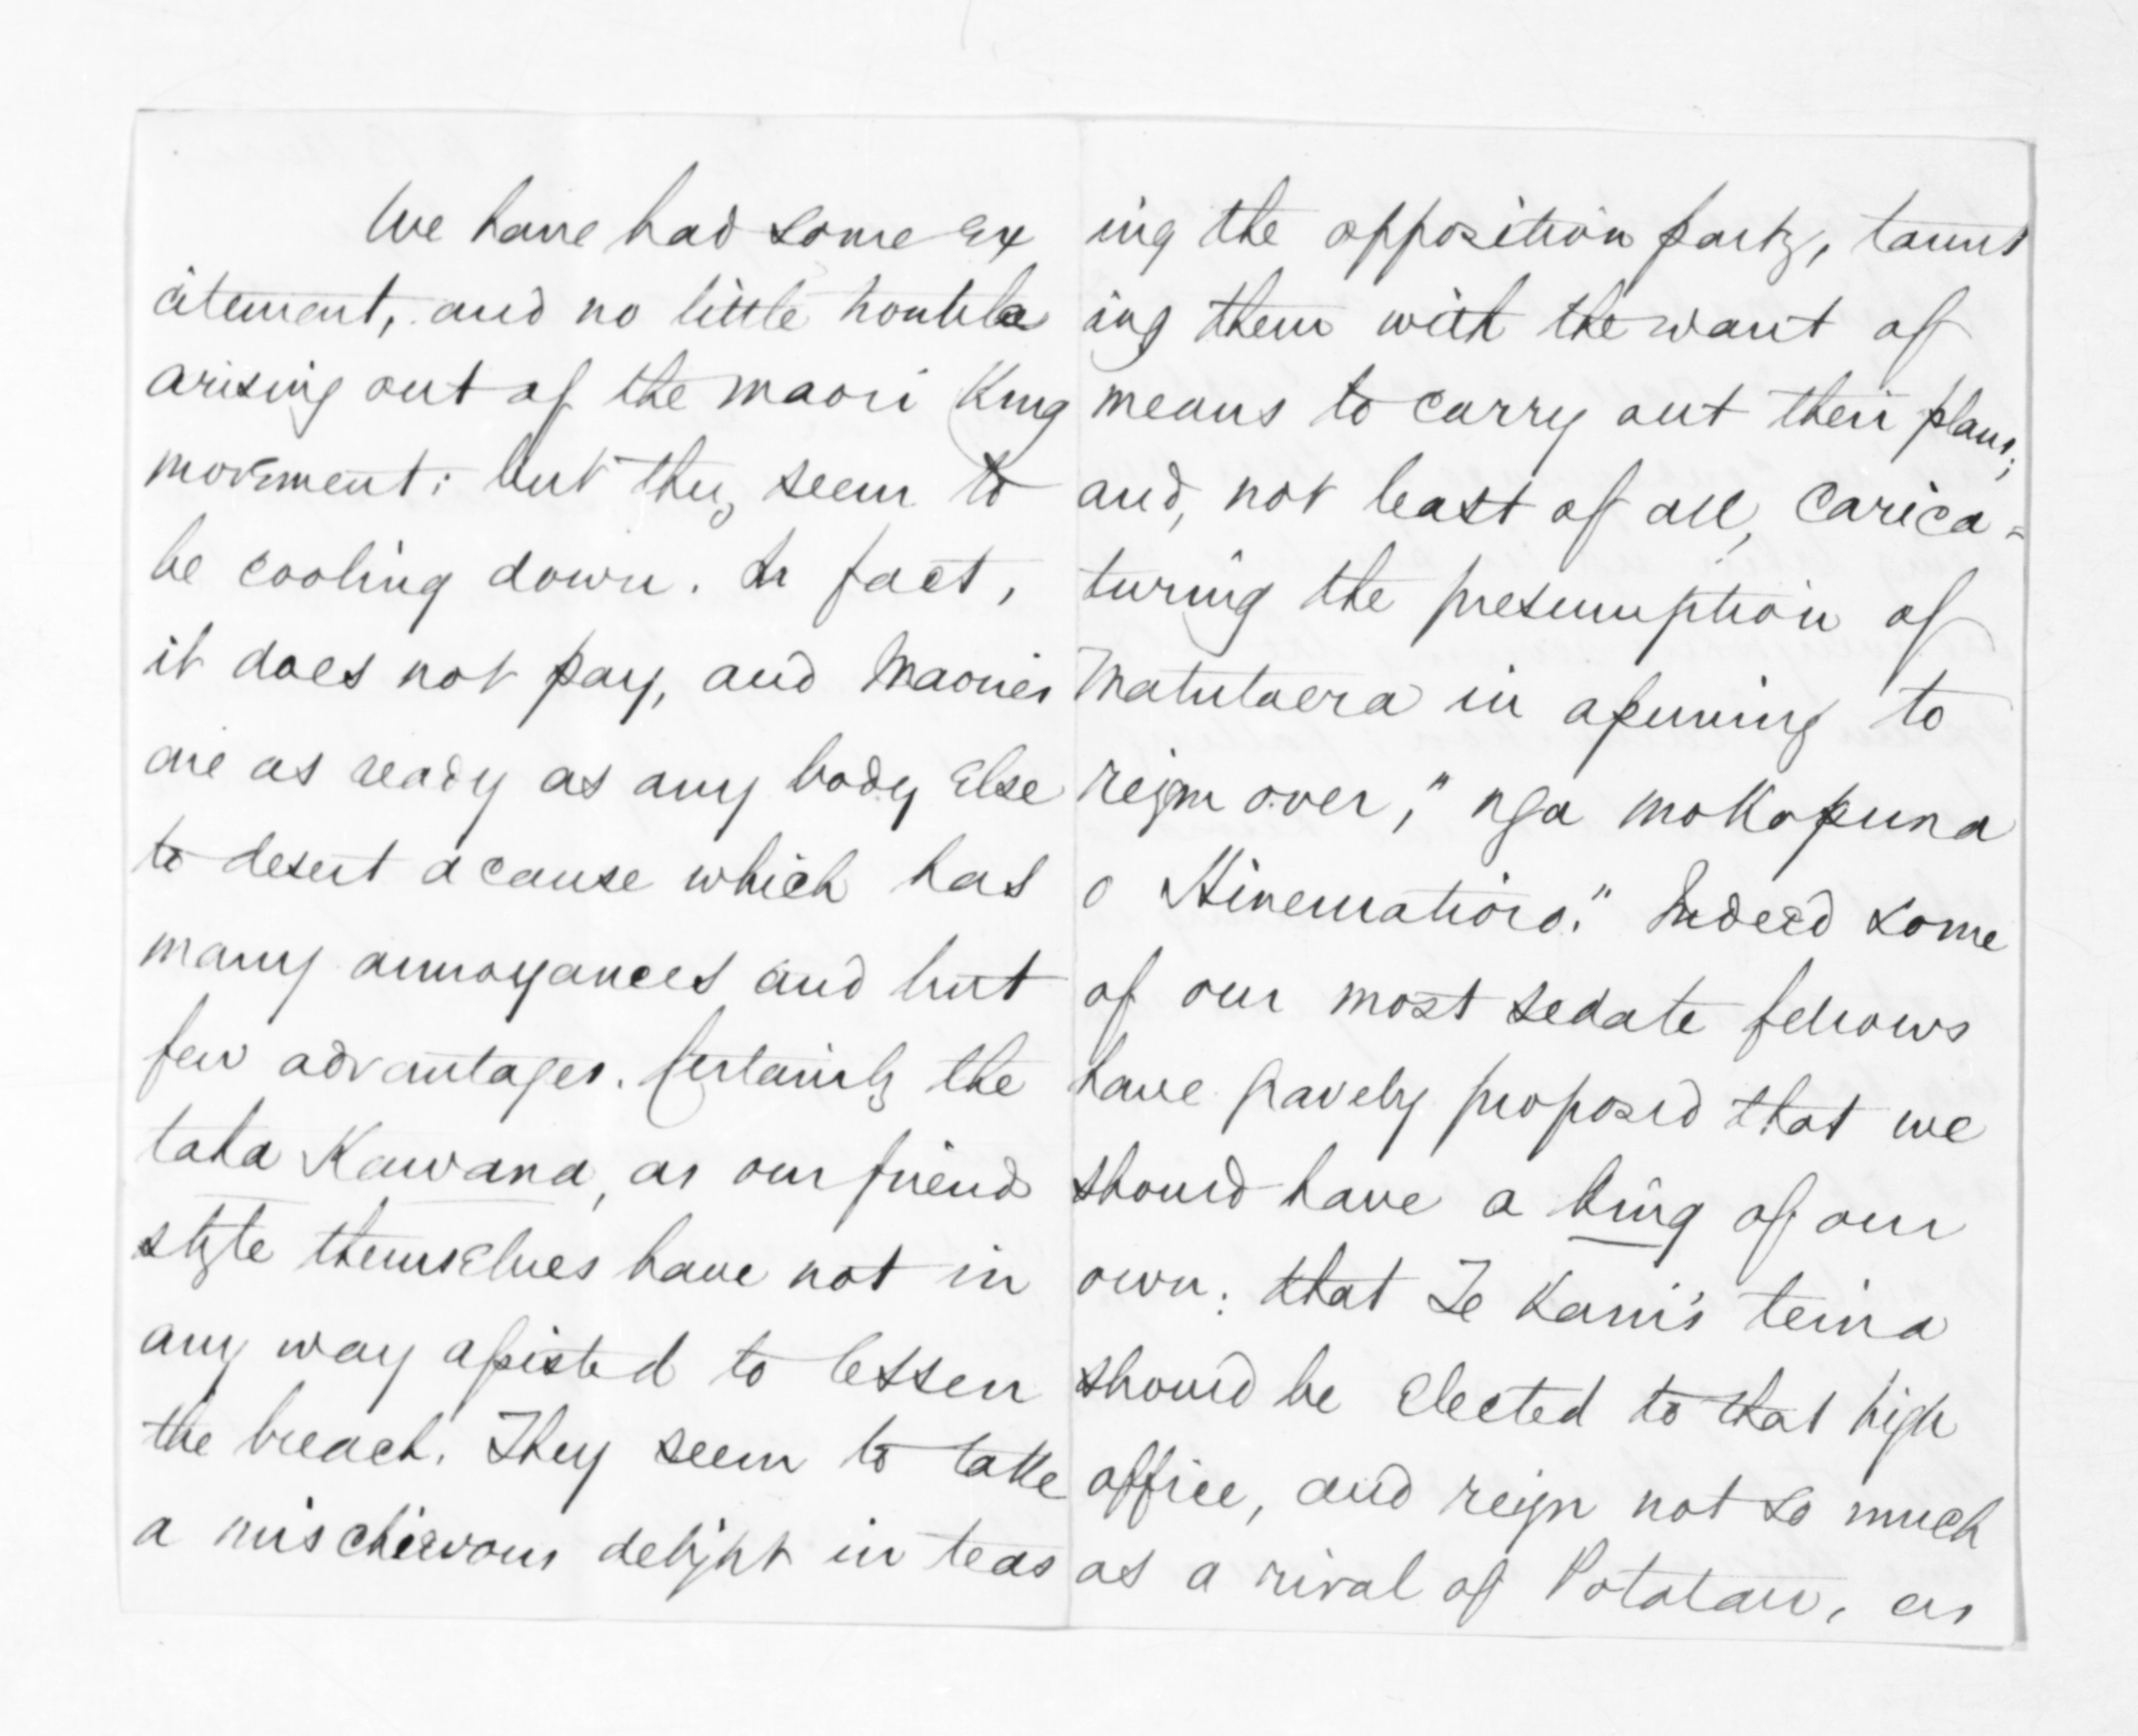 We have had some ex
citement, and no little trouble
arising out of the maori King
movement: but they seem to
be cooling down. In fact,
it does not pay, and Maories
are as ready as any body else
to desert a cause which has
many annoyances and but
few advantages. Certainly the
taha Kawana, as our friends
style themselves have not in
any way assisted to lessen
the breach. They seem to take
a mischievous delight in teas
ing the opposition party, taunt
ing them with the want of
means to carry out their plans;
and, not least of all, carica-
turing the presumption of
Matutaera in assuming to
reign over, "nga mokopuna
o Hinematioro." Indeed some
of our most sedate fellows
have gravely proposed that we
should have a king of our
own: that Te Kani's teina
should be elected to that high
office, and reign not so much
as a rival of Potatau, as